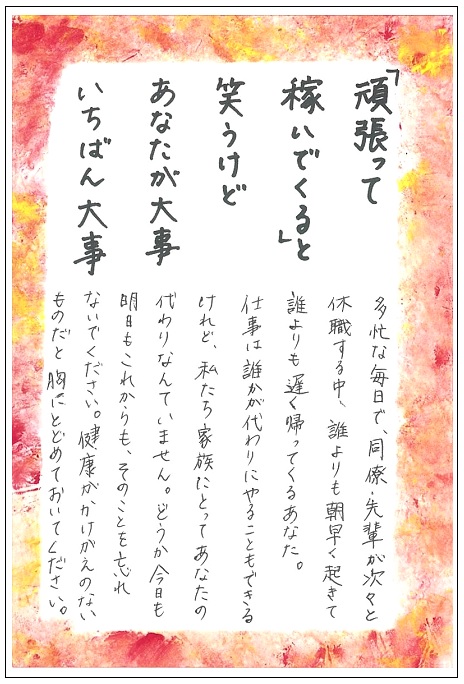 「頑張って
稼いでくると」
笑うけど
あなたが大事
いちばん大事
多忙な毎日で、同僚・先輩が次々と
休職する中、誰よりも朝早く起きて
誰よりも遅く帰ってくるあなた。
仕事は誰かが代わりにやることもできる
けれど、私たち家族にとってあなたの
代わりなんていません。どうか今日も
明日もこれからも、そのことを忘れ
ないでください。健康がかけがえのない
ものだと胸にとどめておいてください。